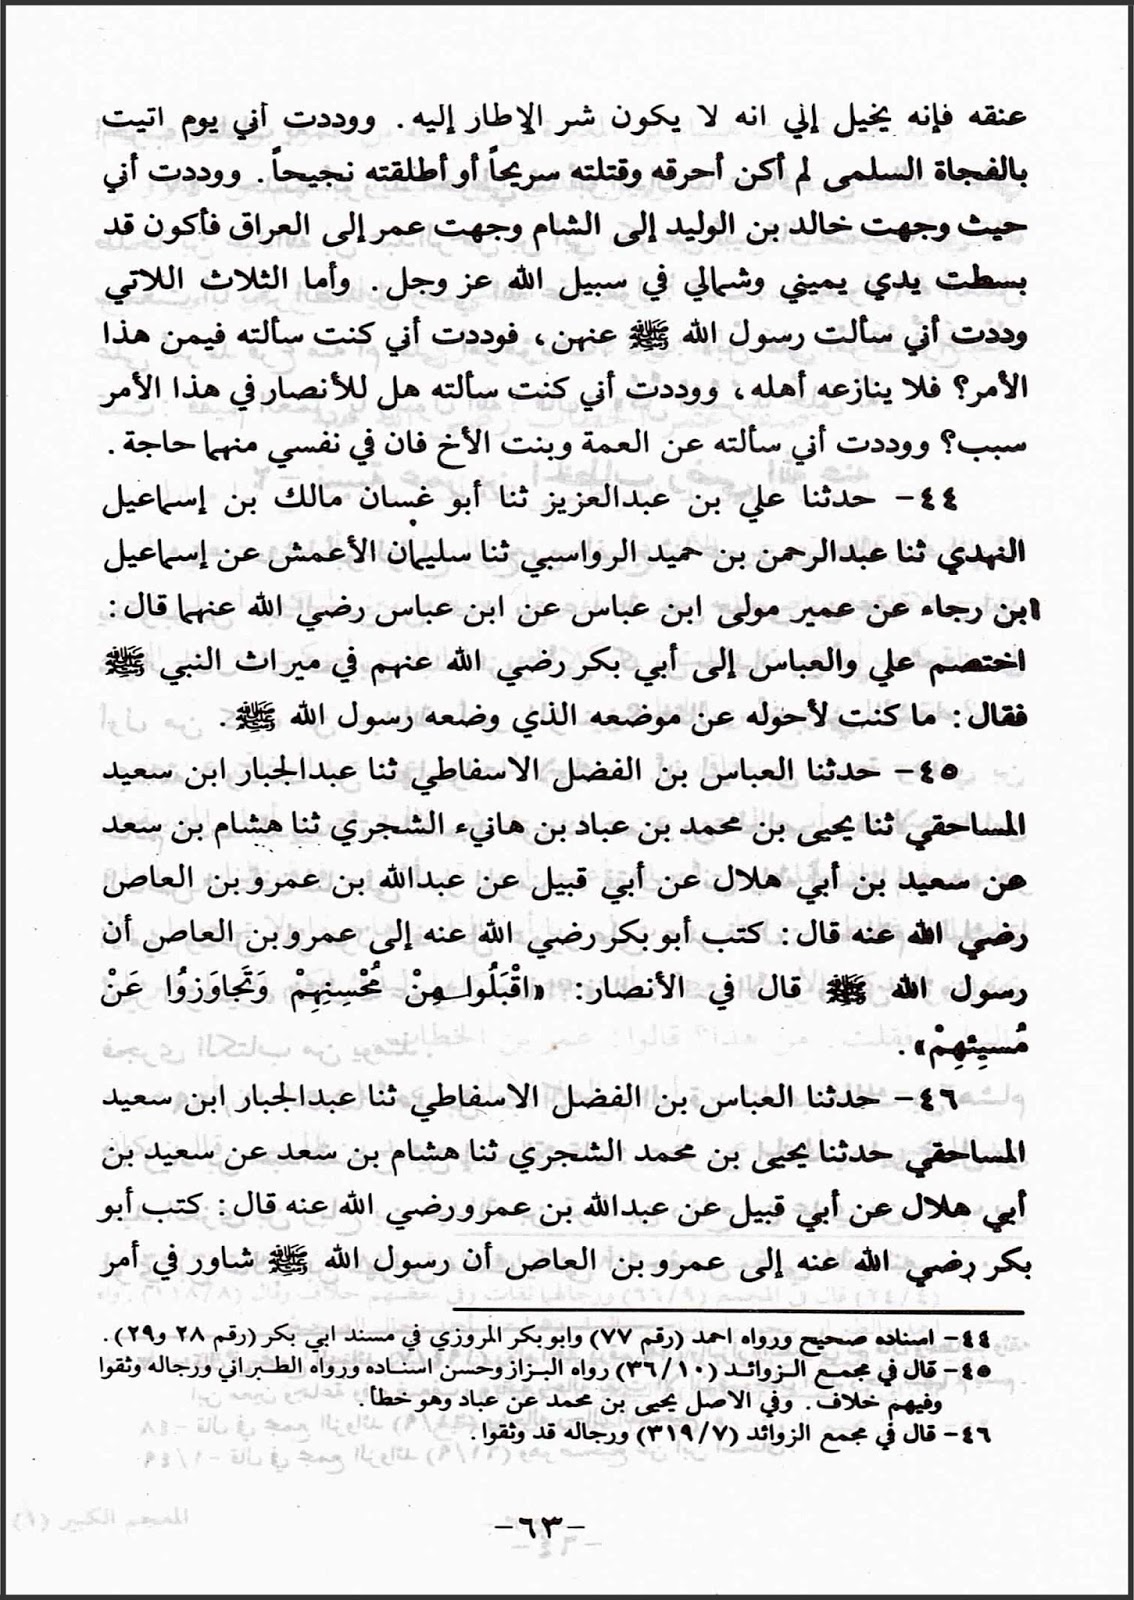 عنقه فإنه يخيل إلي انه لا يكون شر الإطار إليه. ووددت أني يوم اتيت
بالفجاة السلمى لم أكن أحرقه وقتلته سريحاً أو أطلقته نجيحاً. ووددت أني
حيث وجهت خالد بن الوليد إلى الشام وجهت عمر إلى العراق فأكون قد
بسطت يدي يميني وشمالي في سبيل الله عز وجل. وأما الثلاث اللاتي
وددت أني سألت رسول الله ﷺ عنهن، فوددت أني كنت سألته فيمن هذا
الأمر؟ فلا ينازعه أهله، ووددت أني كنت سألته هل للأنصار في هذا الأمر
سبب؟ ووددت أني سألته عن العمة وبنت الأخ فان في نفسي منهما حاجة.
٤٤- حدثنا علي بن عبدالعزيز ثنا أبو غسان مالك بن إسماعيل
النهدي ثنا عبدالرحمن بن حميد الرواسبي ثنا سليمان الأعمش عن إسماعيل
ابن رجاء عن عمير مولى ابن عباس عن ابن عباس رضي الله عنهما قال:
اختصم علي والعباس إلى أبي بكر رضي الله عنهم في ميراث النبي ﷺ
فقال: ما كنت لأحوله عن موضعه الذي وضعه رسول الله ﷺ.
٤٥- حدثنا العباس بن الفضل الاسفاطي ثنا عبدالجبار ابن سعيد
المساحقي ثنا يحيى بن محمد بن عباد بن هانيء الشجري ثنا هشام بن سعد
عن سعيد بن أبي هلال عن أبي قبيل عن عبدالله بن عمرو بن العاص
رضي الله عنه قال: كتب أبو بكر رضي الله عنه إلى عمرو بن العاص أن
رسول الله ﷺ قال في الأنصار: «اقْبَلُوا مِنْ مُحْسِنِهِمْ وَتَجاوَزُوا عَنْ
مُسيِئِهِمْ».
٤٦- حدثنا العباس بن الفضل الاسفاطي ثنا عبدالجبار ابن سعيد
المساحقي حدثنا يحيى بن محمد الشجري ثنا هشام بن سعد عن سعيد بن
أبي هلال عن أبي قبيل عن عبدالله بن عمرو رضي الله عنه قال: كتب أبو
بكر رضي الله عنه إلى عمرو بن العاص أن رسول الله ﷺ شاور في أمر
٤٤- اسناده صحيح ورواه احمد (رقم ٧٧) وابو بكر المروزي في مسند ابي بكر (رقم ٢٨ و٢٩).
٤٥- قال في مجمع الزوائد (٣٦/١٠) رواه البزاز وحسن اسناده ورواه الطبراني ورجاله وثقوا
وفيهم خلاف. وفي الاصل يحيى بن محمد عن عباد وهو خطأ.
٤٦- قال في مجمع الزوائد (٣١٩/٧) ورجاله قد وثقوا.
-٦٣-